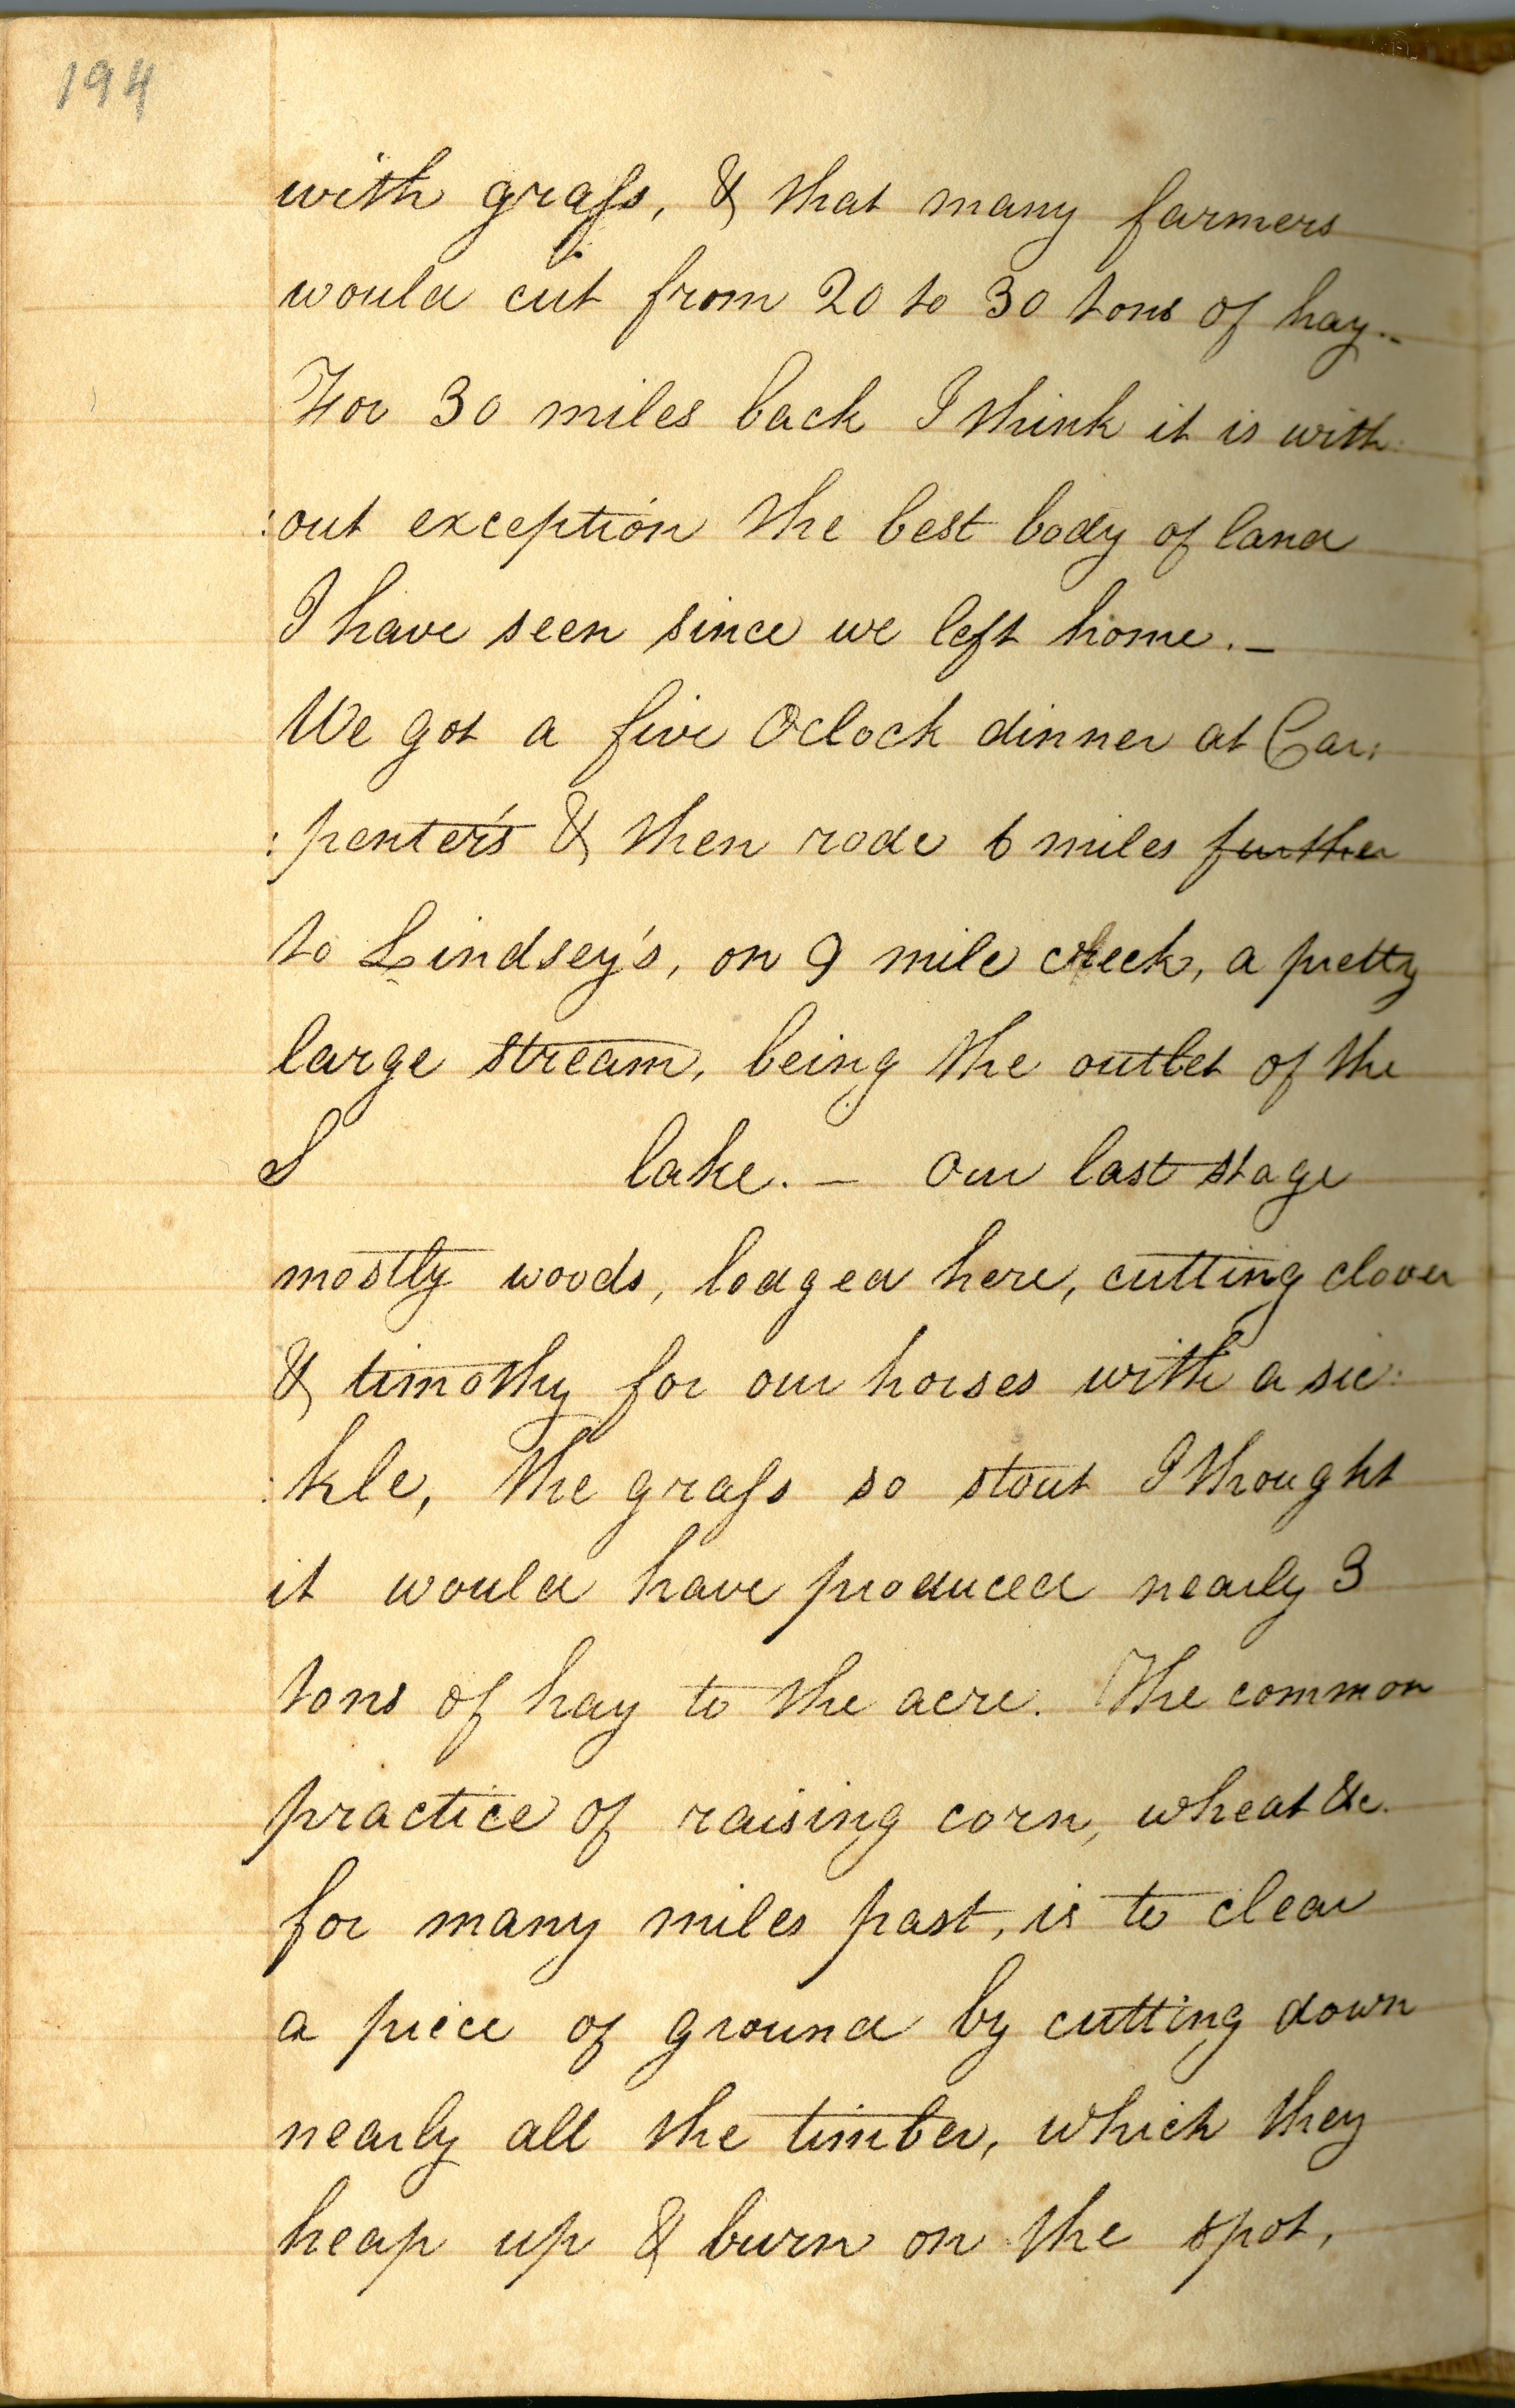 194
with grass, & that many farmers
would cut from 20 to 30 tons of hay..
For 30 miles back I think it is with:
:out exception the best body of land
I have seen since we left home. _
We got a five Oclock dinner at Car:
:penter's & then rode 6 miles further
to Lindsey's, on 9 mile creek, a pretty
large stream, being the outlet of the
S lake. _ Our last stage
mostly woods, lodged here, cutting clover
& timothy for our horses with a sic:
:kle, the grass so stout I thought
it would have produced nearly 3
tons of hay to the acre. The common
practice of raising corn, wheat &c.
for many miles past, is to clear
a piece of ground by cutting down
nearly all the timber, which they
heap up & burn on the spot,